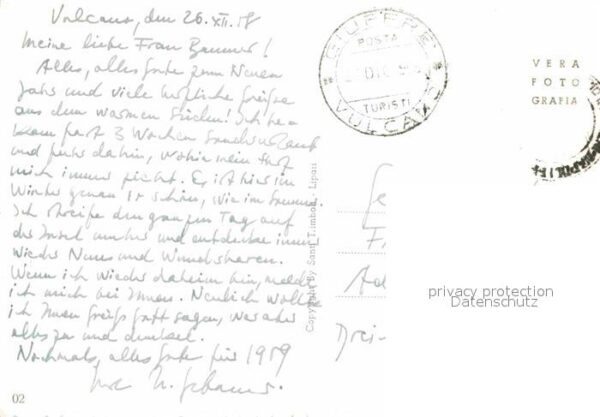 Vulcano, den 26.XII.58
Meine liebe Frau Banner!
Alles, alles Gute zum Neuen
Jahr und viele herzliche Grüße
aus dem warmen Süden! Ich
kam fast 3 Wochen
und dahin, wohin mein
mich immer zieht. Es ist hier im
Winter genau so schön, wie im Sommer.
Ich streife den ganzen Tag auf
der Insel umher und entdecke immer
wieder Neues und Wunderbares.
Wenn ich wieder daheim bin, melde
ich mich bei Ihnen. Neulich wollte
ich Ihnen Grüß Gott sagen, war aber
alles zu und dunkel.
Nochmals, alles Gute für 1959
Ihre
GIUFFRE
POSTA
DIC
TURISTI
VULCANO
VERA
FOTO
GRAFIA
Copyright By Santi T.imboli - Lipari
F
Drei-
privacy protection
Datenschutz
02